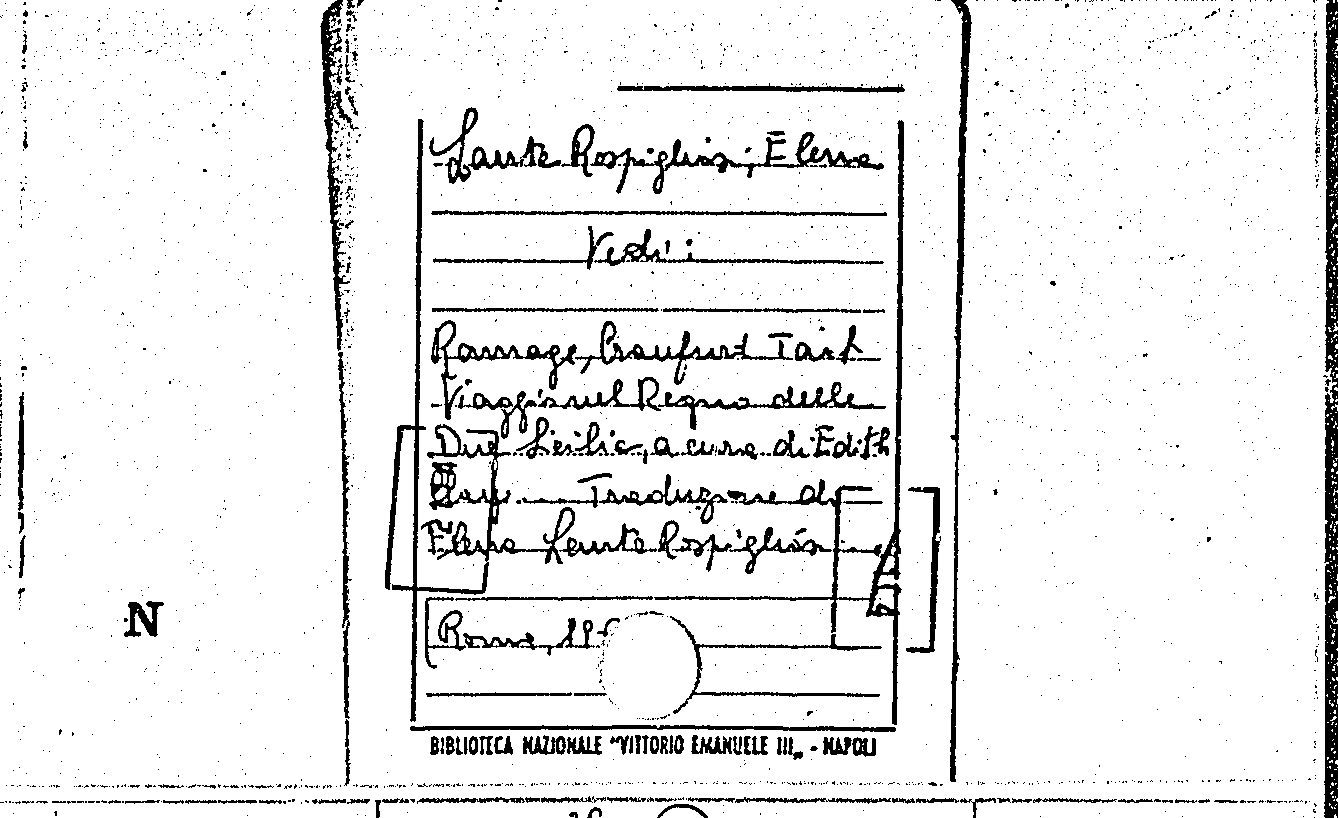 Lante Rospigliosi, Elena
Vedi:
Ramage, Craufurd Tait
Viaggio nel Regno delle
Due Sicilie, a cura di Edith
Clay. Traduzione di
Elena Lante Rospigliosi
N
Roma, 19
BIBLIOTECA NAZIONALE "VITTORIO EMANUELE III„ - NAPOLI